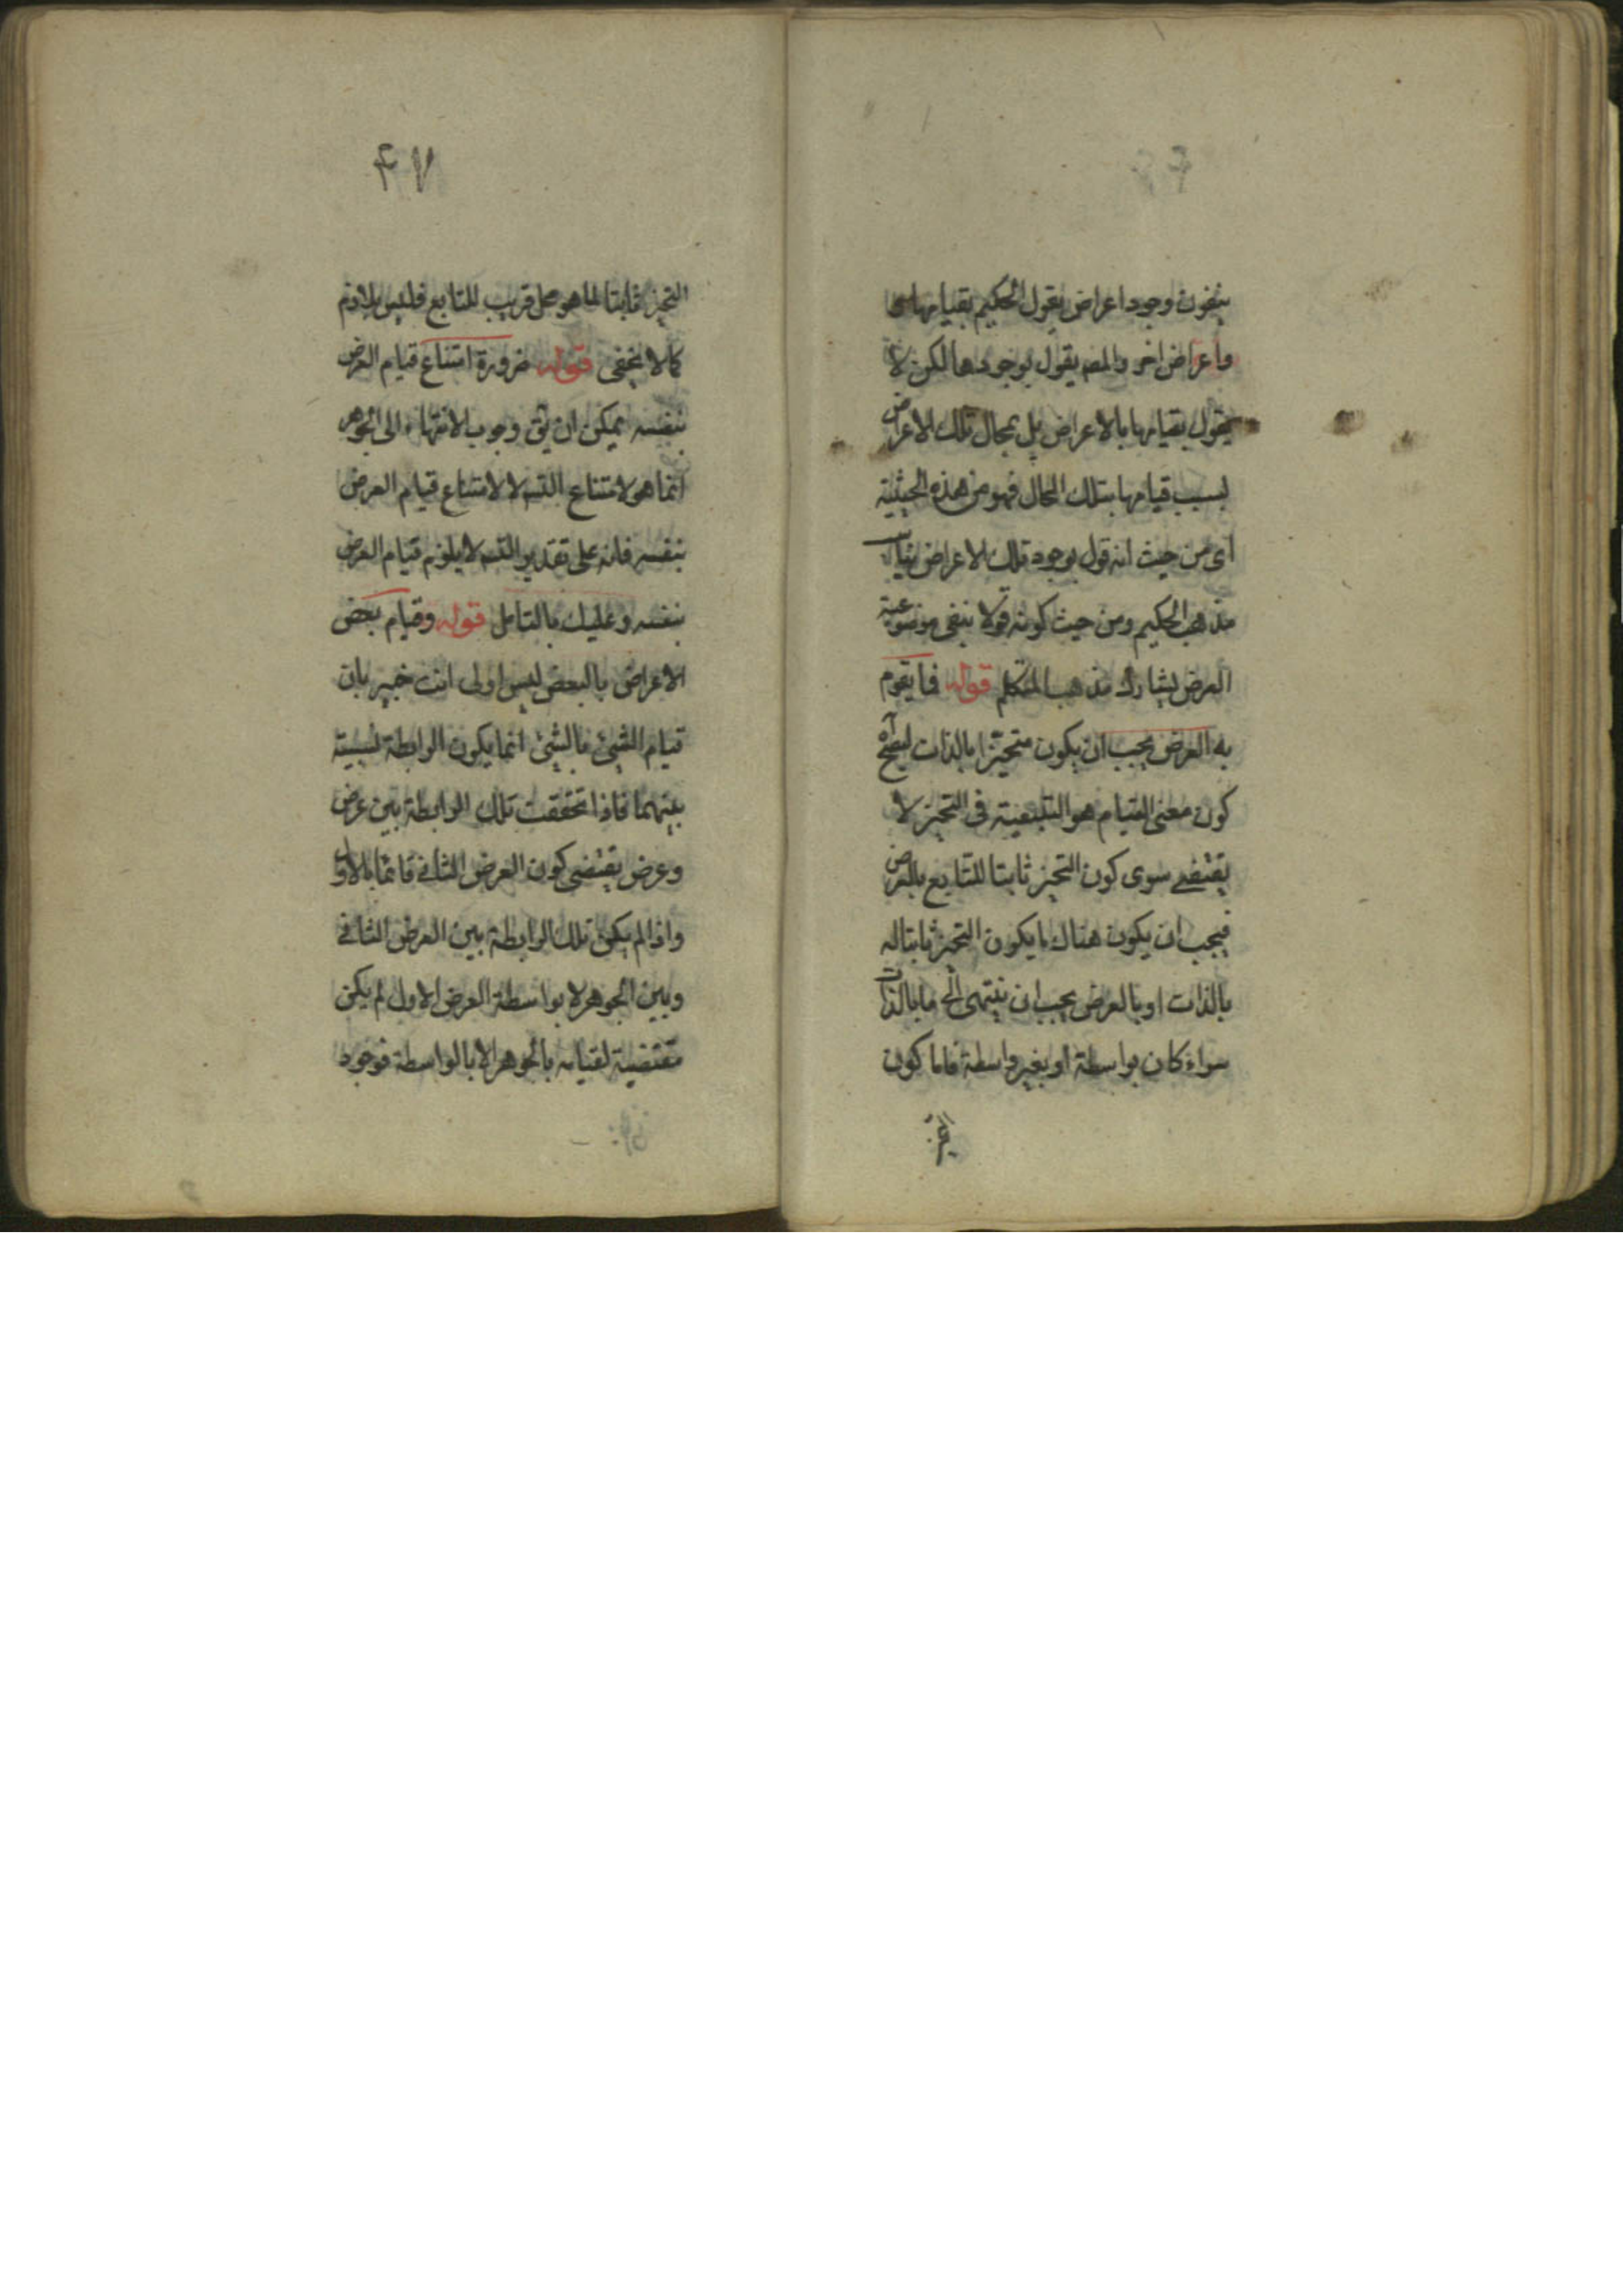 ينفون وجود اعراض يقول الحكيم بقيامها
واعراض اخر والمص يقول بوجودها لكن لا
يقول بقيامها بالاعراض بل بمحال تلك الاعراض
بسبب قيامها بتلك المحال فهو من هذه الحيثية
اى من حيث انه قول بوجود تلك الاعراض
مذهب الحكيم ومن حيث كونه قولا بنفى موضوعية
العرض يشارك مذهب المتكلم قوله فما يقوم
به العرض يجب ان يكون متحيزا بالذات ليصح آه
كون معنى القيام هو التبعية فى التحيز لا
يقتضى سوى كون التحيز ثابتا للتابع بالعرض
فيجب ان يكون هناك ما يكون التحيز ثابتا له
بالذات او بالعرض يجب ان ينتهى الى ما بالذات
سواء كان بواسطة او بغير واسطة فاما كون
۴۷
التحيز ثابتا لما هو محل قريب للتابع فليس بلازم
كما لا يخفى قوله ضرورة امتناع قيام العرض
بنفسه يمكن ان يق وجوب الانتهاء الى الجوهر
انما هو لامتناع التس لا لامتناع قيام العرض
بنفسه فانه على تقدير التس لا يلزم قيام العرض
بنفسه وعليك بالتامل قوله وقيام بعض
الاعراض بالبعض ليس اولى انت خبير بان
قيام الشئ بالشئ انما يكون الرابطة نسبية
بينهما فاذا تحققت تلك الرابطة بين عرض
وعرض يقتضى كون العرض الثانى قائما بالاول
واذا لم يكن تلك الرابطة بين العرض الثانى
وبين الجوهر لا بواسطة العرض الاول لم يكن
مقتضية لقيامه بالجوهر الا بالواسطة فوجود